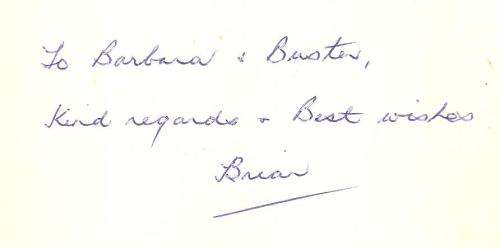 To Barbara & Buster,
Kind regards & Best wishes
Brian